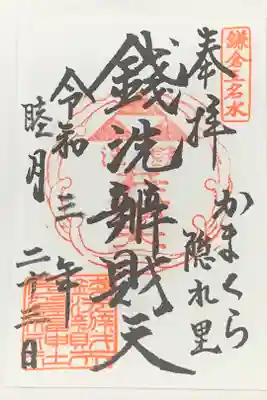 鎌倉五名水
奉拝
かまくら
隠れ里
銭洗辨財天
令和三年
睦月二十三日